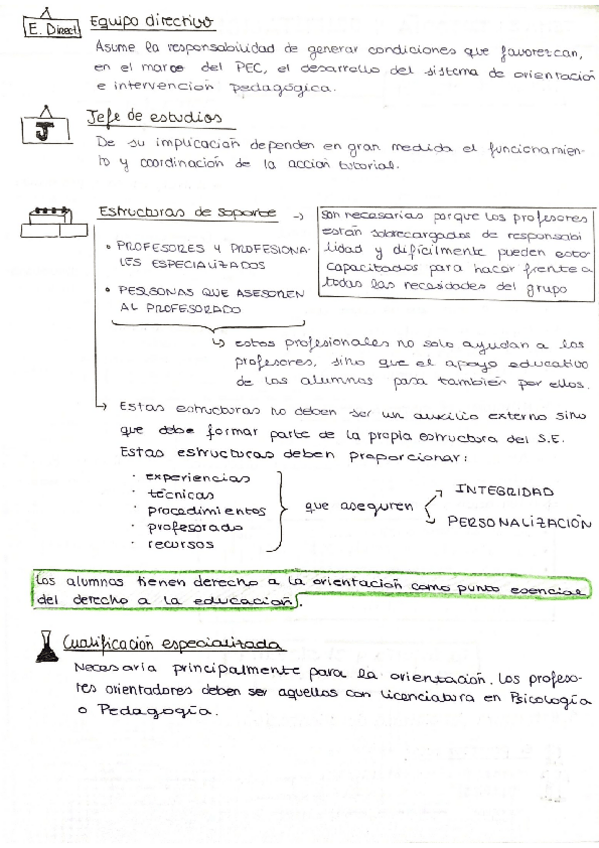 E. Direct
Equipo directivo
Asume la responsabilidad de generar condiciones que favorezcan,
en el marco del PEC, el desarrollo del sistema de orientación
e intervención pedagógica.
J
Jefe de estudios
De su implicación dependen en gran medida el funcionamien-
to y coordinación de la acción tutorial.
Estructuras de soporte →
son necesarias porque los profesores
están sobrecargados de responsabi
lidad y difícilmente pueden estar
capacitados para hacer frente a
todas las necesidades del grupo
• PROFESORES Y PROFESIONA-
LES ESPECIALIZADOS
• PERSONAS QUE ASESOREN
AL PROFESORADO
↳ estos profesionales no solo ayudan a los
profesores, sino que el apoyo educativo
de los alumnos pasa también por ellos.
→ Estas estructuras no deben ser un auxilio externo sino
que debe formar parte de la propia estructura del S.E.
Estas estructuras deben proporcionar:
· experiencias
· técnicas
· procedimientos
· profesorado
· recursos
que aseguren
INTEGRIDAD
PERSONALIZACIÓN
Los alumnos tienen derecho a la orientación como punto esencial
del derecho a la educación.
Cualificación especializada
Necesaria principalmente para la orientación. Los profeso-
res orientadores deben ser aquellos con Licenciatura en Psicología
o Pedagogía.